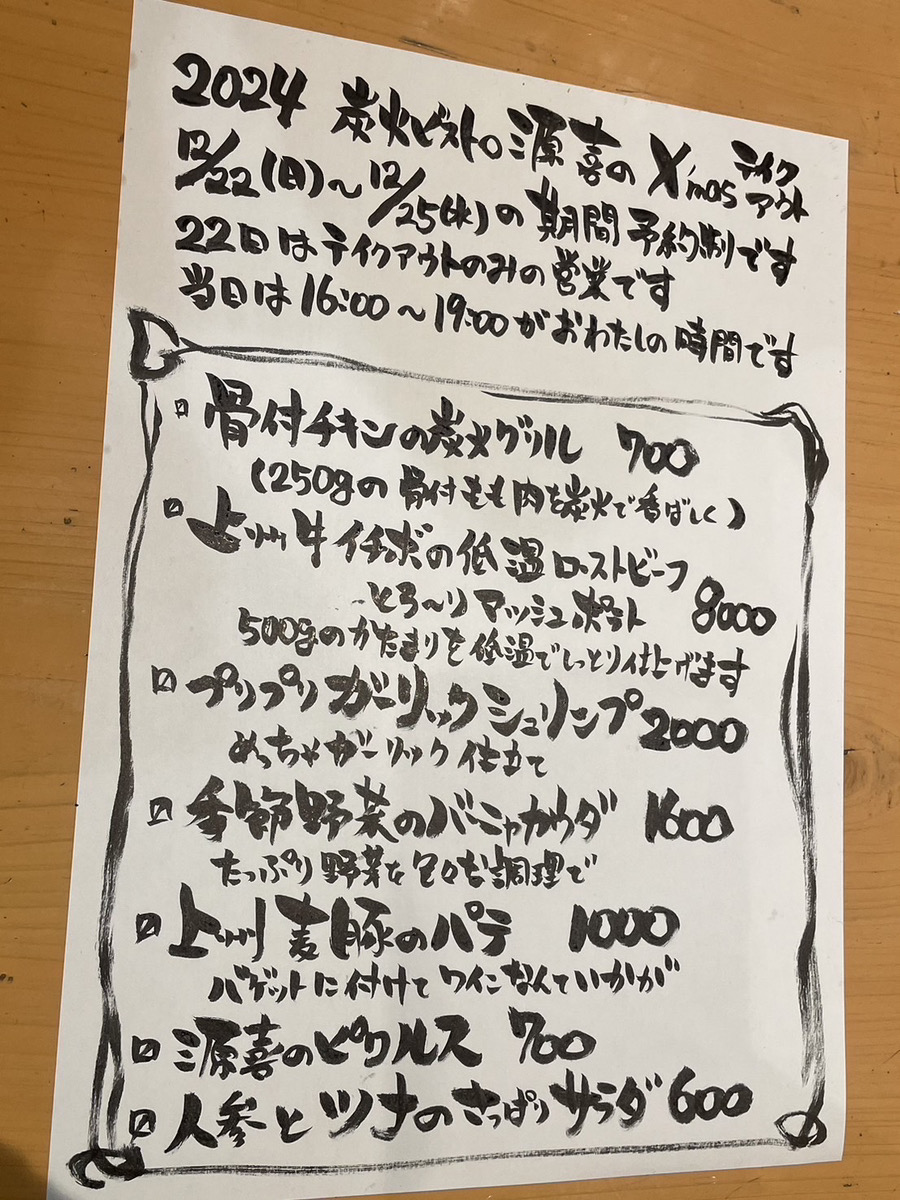 2024 炭火ビストロ源喜のX'mosテイクアウト
12/22(日)〜12/25(水)の期間予約制です
22日はテイクアウトのみの営業です
当日は16:00〜19:00がおわたしの時間です
骨付チキンの炭火グリル 700
(250gの骨付もも肉を炭火で香ばしく)
上州牛イチボの低温ローストビーフ
とろ〜りマッシュポテト 8000
500gのかたまりを低温でしっとり仕上げます
プリプリガーリックシュリンプ 2000
めっちゃガーリック仕立て
季節野菜のバーニャカウダ 1600
たっぷり野菜を色々な調理で
上州麦豚のパテ 1000
バゲットに付けてワインなんていかが
源喜のピクルス 700
人参とツナのさっぱりサラダ 600